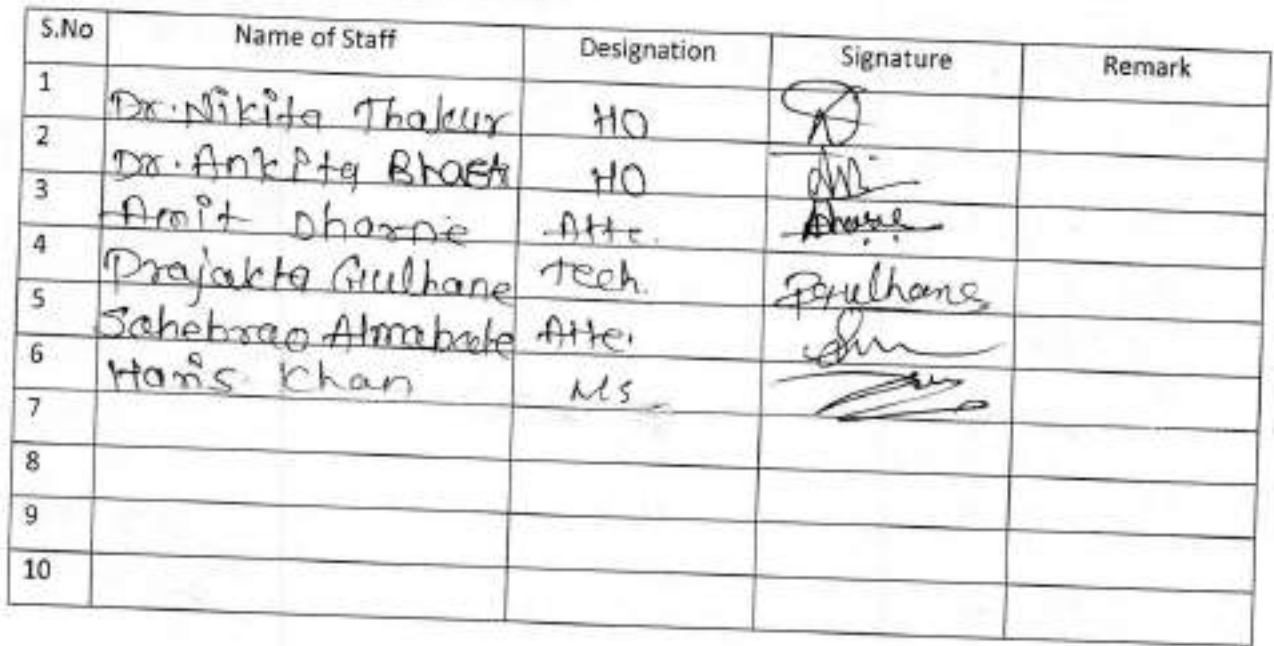 S.No Name of Staff Designation Signature Remark
1 Dr. Nikita Thakur HO
2 Dr. Ankita HO
3 Amit Dharne Atte.
4 Prajakta Gulhane Tech. PGulhane
5 Sahebrao Atte.
6 Haris Khan MS
7
8
9
10